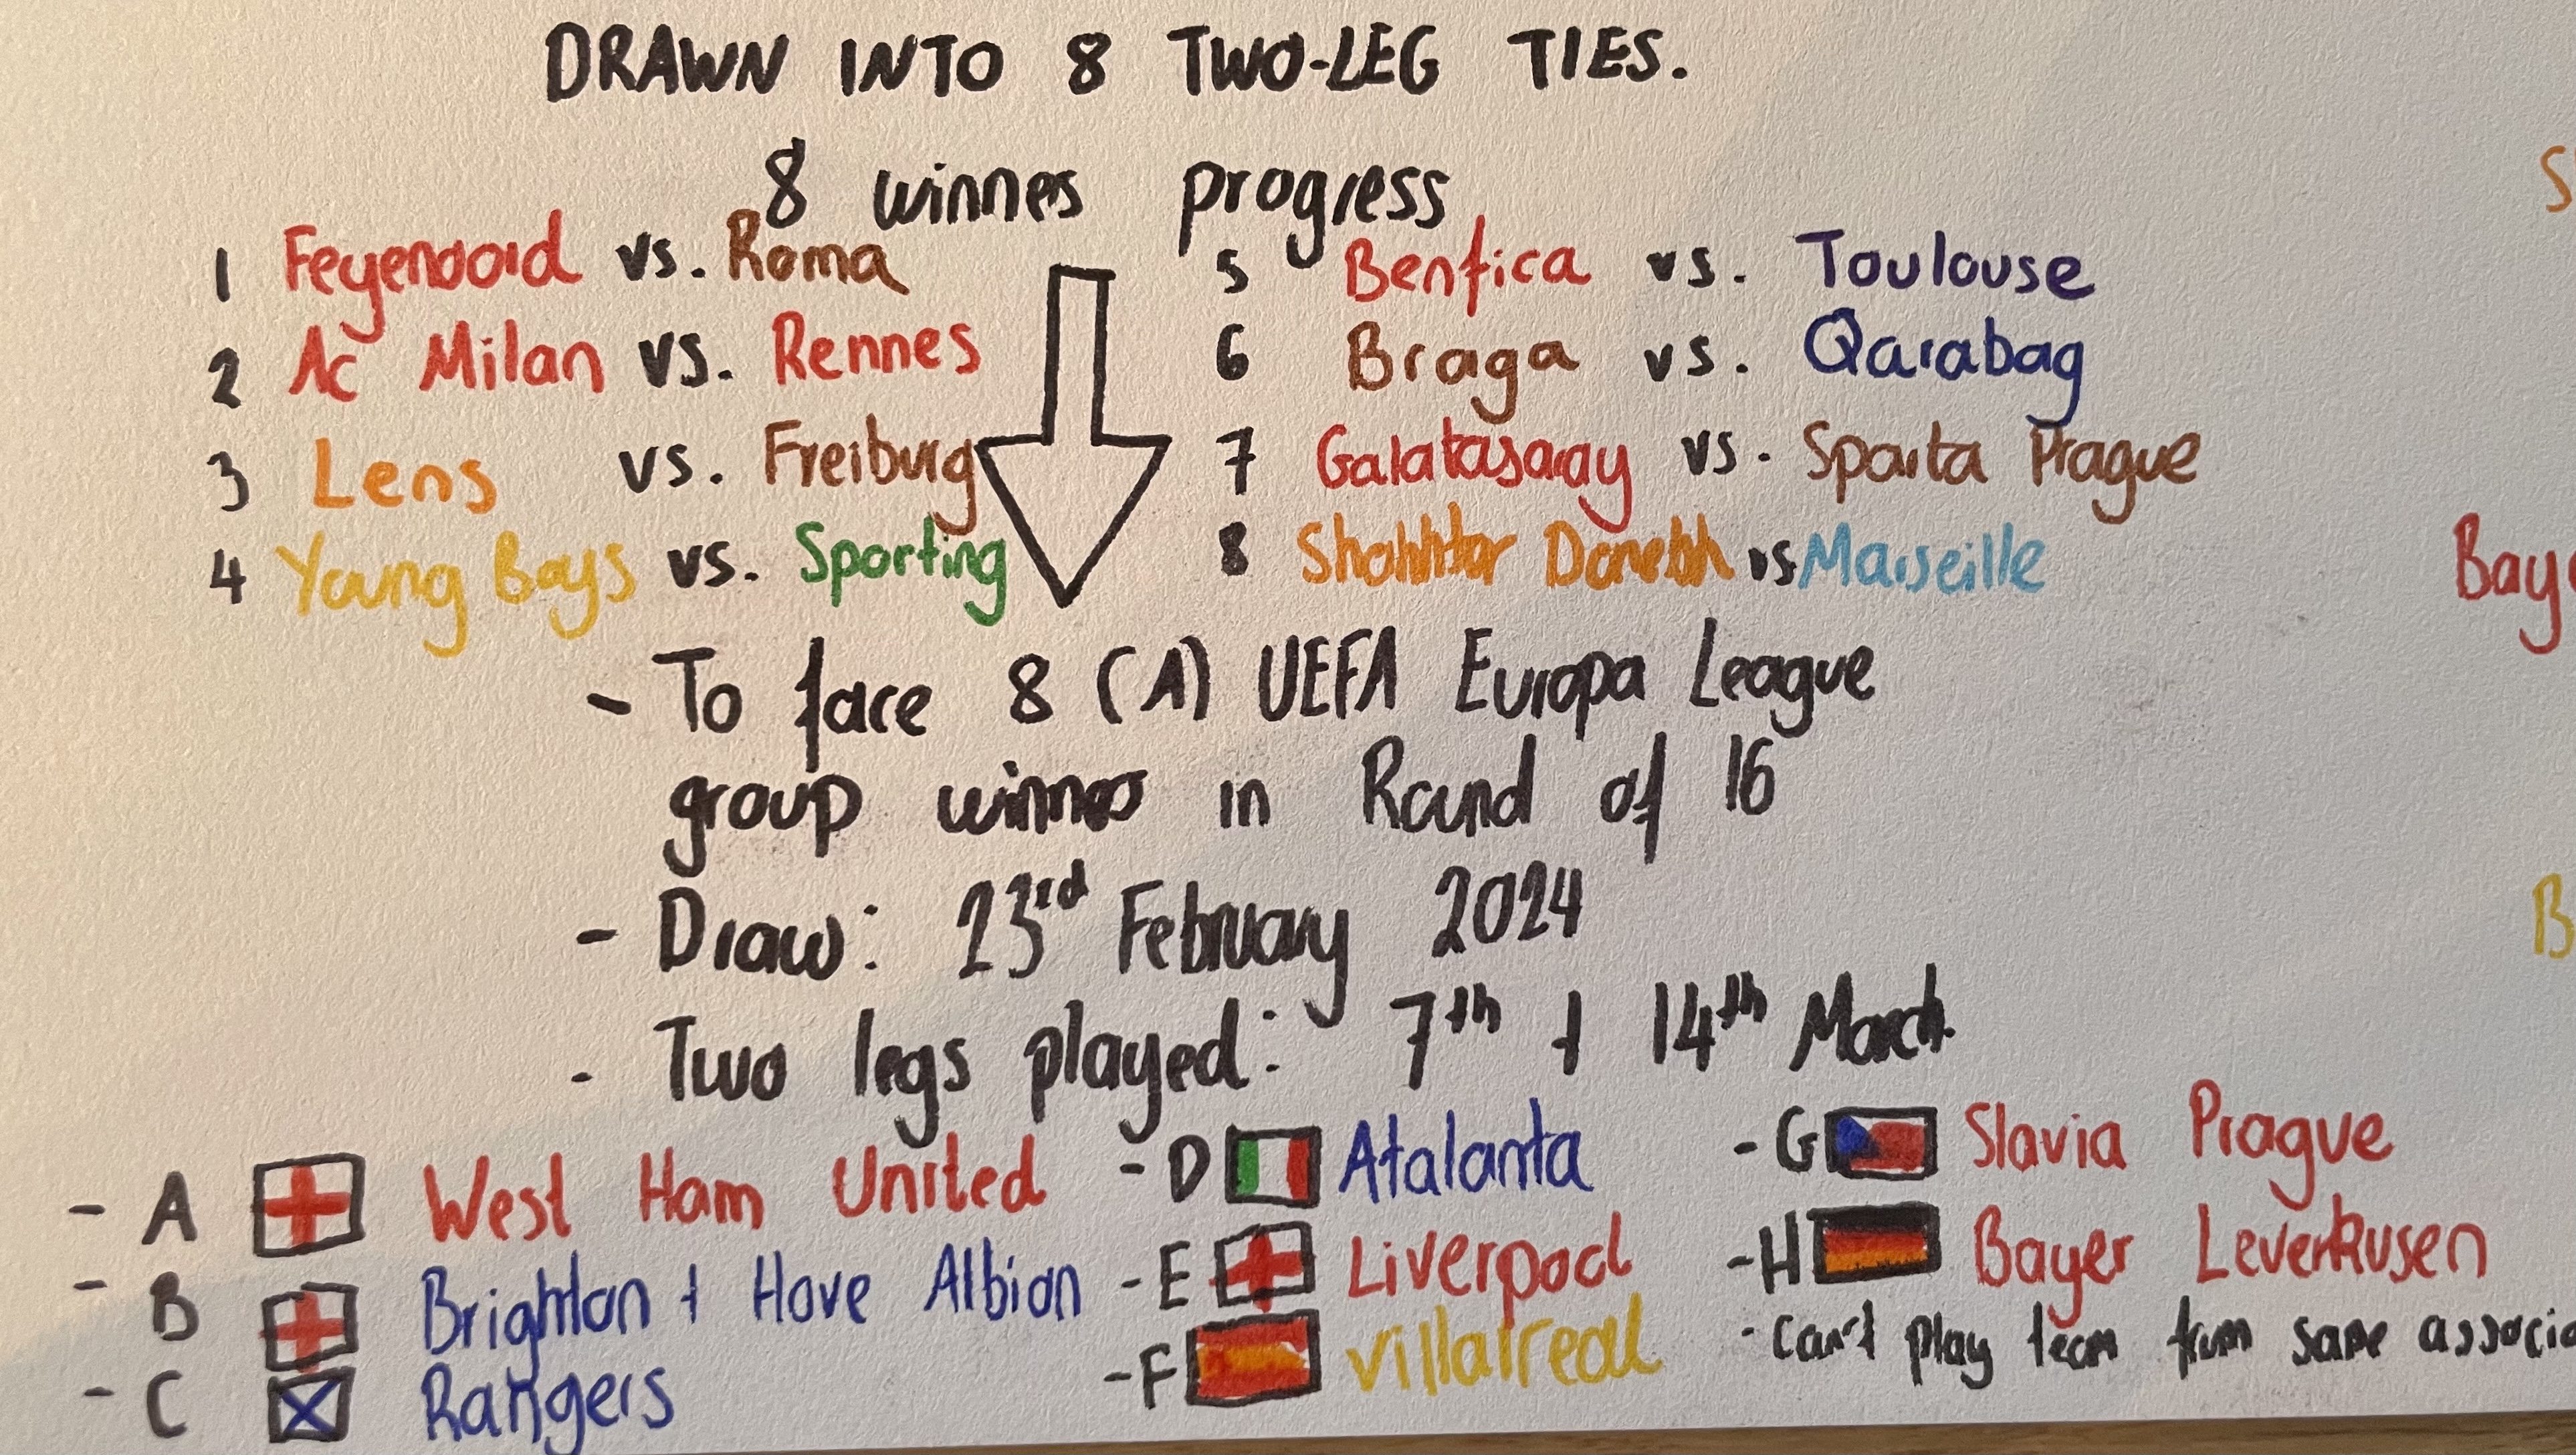 DRAWN INTO 8 TWO-LEG TIES.
8 winners progress
1 Feyenoord vs. Roma
2 Ac Milan vs. Rennes
3 Lens vs. Freiburg
4 Young Boys vs. Sporting
5 Benfica vs. Toulouse
6 Braga vs. Qarabag
7 Galatasaray vs. Sparta Prague
8 Shahktar Donetsk vs Marseille
S
Baye
B
- To face 8 (A) UEFA Europa League
group winners in Round of 16
- Draw: 23rd February 2024
- Two legs played: 7th + 14th March
- A West Ham United
- B Brighton + Hove Albion
- C Rangers
- D Atalanta
- E Liverpool
- F Villarreal
- G Slavia Prague
- H Bayer Leverkusen
- Can't play team from same associa